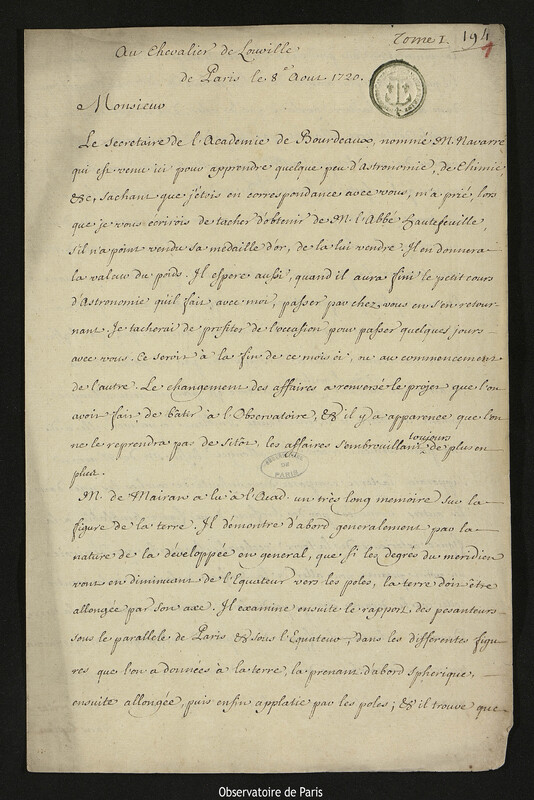 Tome I. 194
1
Au Chevalier de Louville
de Paris le 8.e Aout 1720.
Monsieur
Le secretaire de l'Academie de Bourdeaux, nommé M. Navarre
qui est venu ici pour apprendre quelque peu d'Astronomie, de Chimie,
&c, sachant que j'étois en correspondance avec vous, m'a prié, lors
que je vous écrirois de tacher d'obtenir de M. l'Abbé Hautefeuille,
s'il n'a point vendu sa médaille d'or, de la lui vendre. Il en donnera
la valeur du poids. Il espere aussi, quand il aura fini le petit cours
d'Astronomie qu'il fait avec moi, passer par chez vous en s'en retour-
nant. Je tacherai de profiter de l'occasion pour passer quelques jours
avec vous. Ce seroit à la fin de ce mois ci, ou au commencement
de l'autre. Le changement des affaires a renversé le projet que l'on
avoit fait de bâtir à l'Observatoire, & il y a apparence que l'on
ne le reprendra pas de sitôt, les affaires s'embrouillant toujours de plus en
plus.
OBSERVATOIRE DE PARIS
M. de Mairan a lu à l'Acad. un très long memoire sur la
figure de la terre. Il démontre d'abord generalement par la
nature de la développée en general, que si les degrés du meridien
vont en diminuant de l'Equateur vers les poles, la terre doit être
allongée par son axe. Il examine ensuite le rapport des pesanteurs
sous le parallele de Paris & sous l'Equateur, dans les differentes figu-
res que l'on a données à la terre, la prenant d'abord spherique,
ensuite allongée, puis enfin applatie par les poles; & il trouve que
Observatoire de Paris